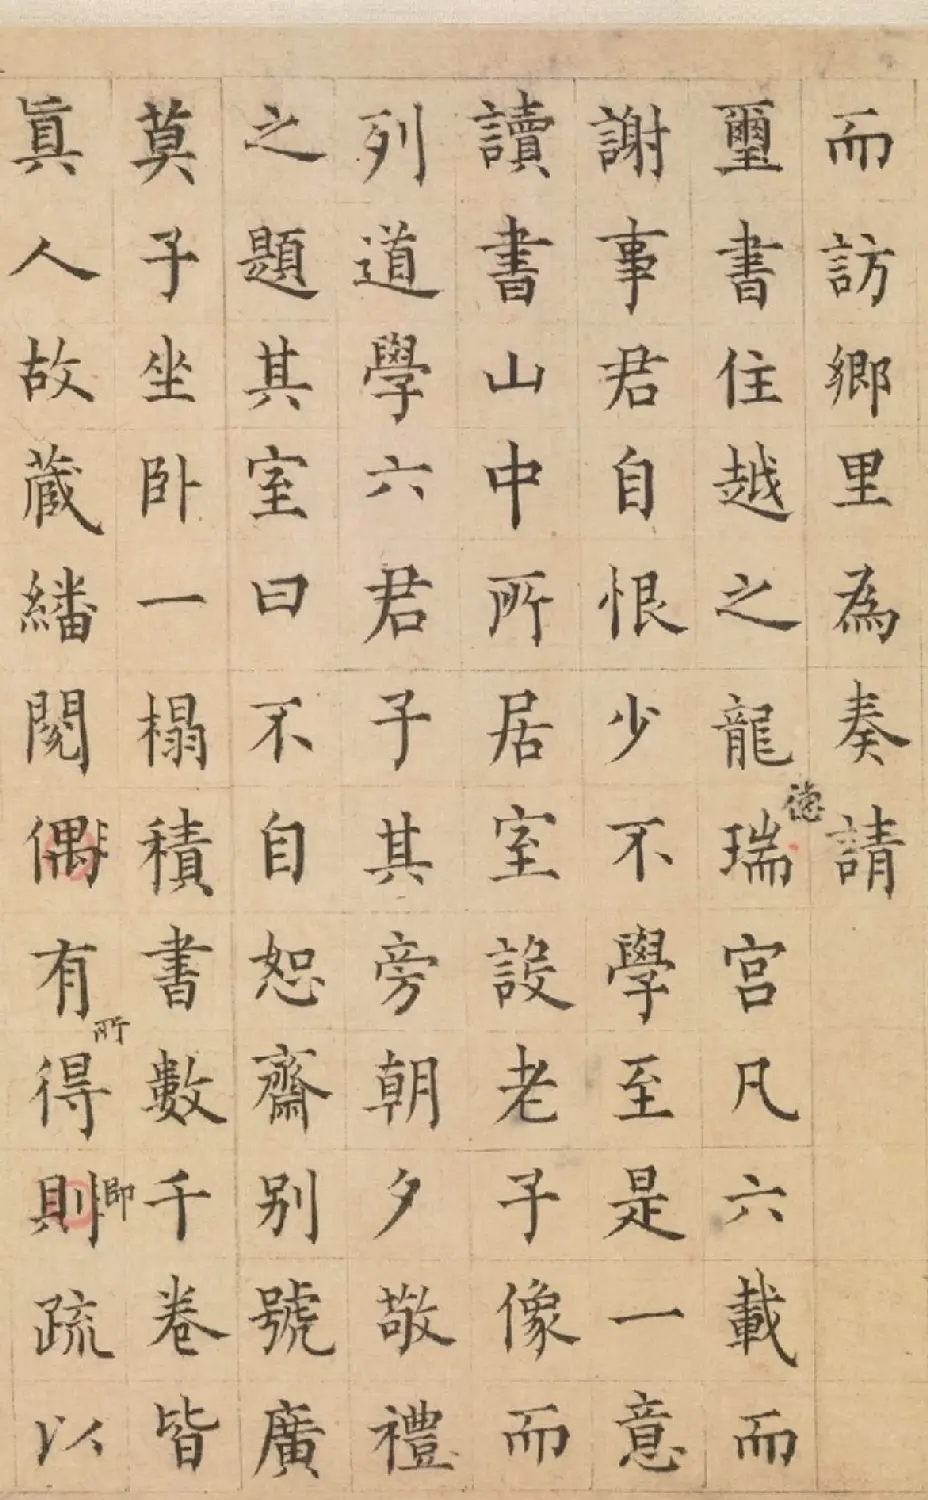 而訪鄉里為奏請
璽書住越之龍瑞德宮凡六載而
謝事君自恨少不學至是一意
讀書山中所居室設老子像而
列道學六君子其旁朝夕敬禮
之題其室曰不自恕齋别號廣
莫子坐卧一榻積書數千卷皆
眞人故藏繙閱偶有所得則即疏以